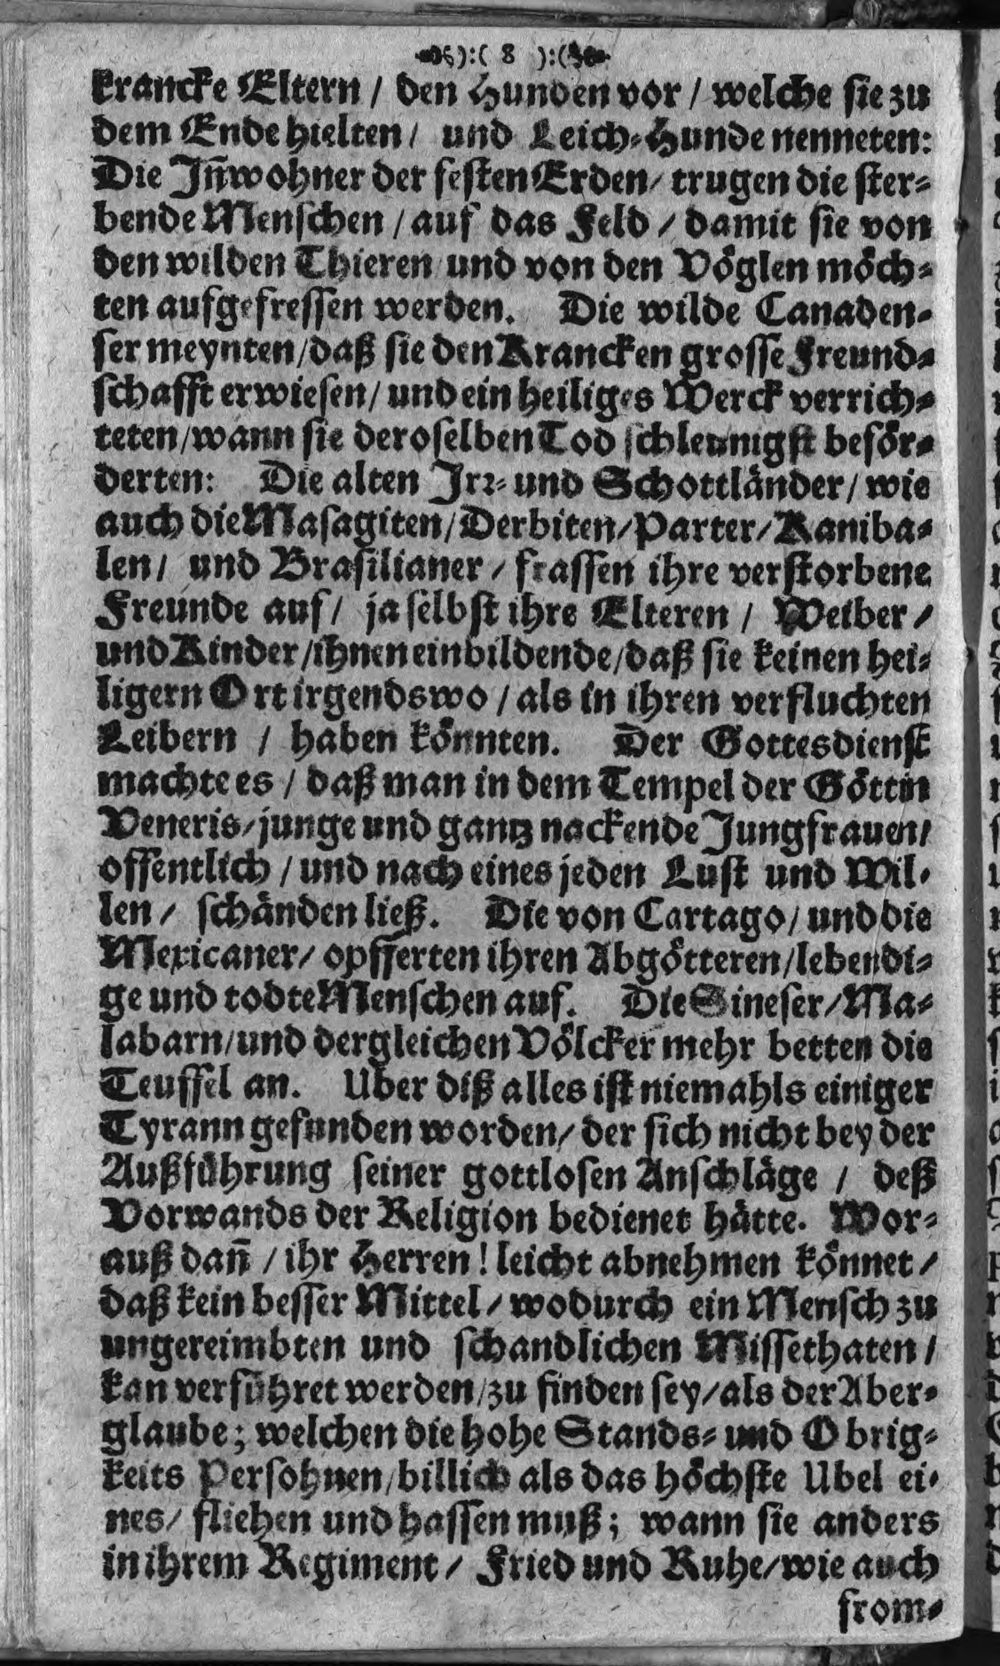 ):( 8 ):(
krancke Eltern / den Hunden vor / welche sie zu
dem Ende hielten / und Leich-Hunde nenneten:
Die Jñwohner der festen Erden / trugen die ster-
bende Menschen / auf das Feld / damit sie von
den wilden Thieren und von den Vöglen möch-
ten aufgefressen werden. Die wilde Canaden-
ser meynten / daß sie den Krancken grosse Freund-
schafft erwiesen / und ein heiliges Werck verrich-
teten / wann sie deroselben Tod schleunigst beför-
derten: Die alten Jrr- und Schottländer / wie
auch die Masagiten / Derbiten / Parter / Kaniba-
len / und Brasilianer / frassen ihre verstorbene
Freunde auf / ja selbst ihre Elteren / Weiber /
und Kinder / ihnen einbildende / daß sie keinen hei-
ligern Ort irgendswo / als in ihren verfluchten
Leibern / haben könnten. Der Gottesdienst
machte es / daß man in dem Tempel der Göttin
Veneris / junge und gantz nackende Jungfrauen /
offentlich / und nach eines jeden Lust und Wil-
len / schänden ließ. Die von Cartago / und die
Mexicaner / opfferten ihren Abgötteren / lebendi-
ge und todte Menschen auf. Die Sineser / Ma-
labarn / und dergleichen Völcker mehr betten die
Teuffel an. Uber diß alles ist niemahls einiger
Tyrann gefunden worden / der sich nicht bey der
Außführung seiner gottlosen Anschläge / deß
Vorwands der Religion bedienet hätte. Wor-
auß dañ / ihr Herren! leicht abnehmen könnet /
daß kein besser Mittel / wodurch ein Mensch zu
ungereimbten und schandlichen Missethaten /
kan verführet werden / zu finden sey / als der Aber-
glaube; welchen die hohe Stands- und Obrig-
keits Persohnen / billich als das höchste Ubel ei-
nes / fliehen und hassen muß; wann sie anders
in ihrem Regiment / Fried und Ruhe / wie auch
from-